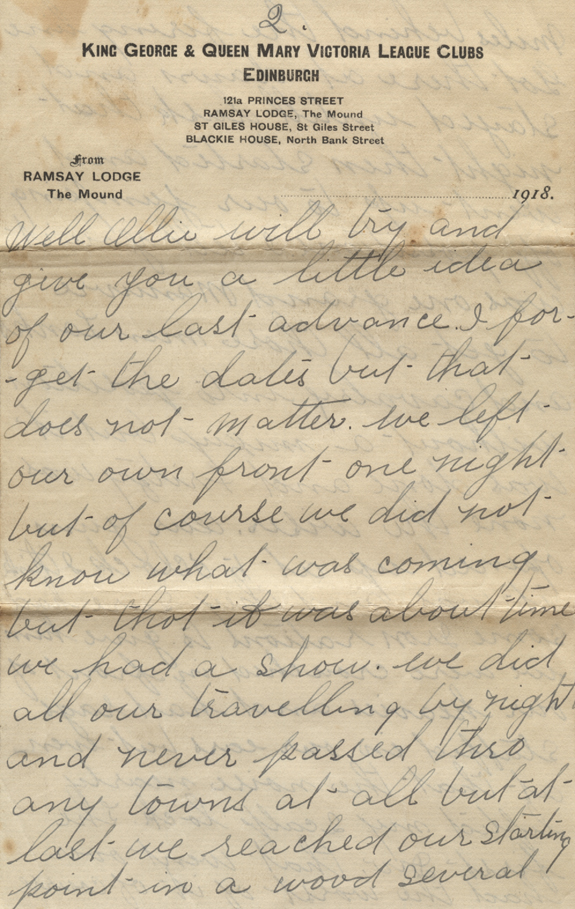 2.
KING GEORGE & QUEEN MARY VICTORIA LEAGUE CLUBS
EDINBURGH
121a PRINCES STREET
RAMSAY LODGE, The Mound
ST GILES HOUSE, St Giles Street
BLACKIE HOUSE, North Bank Street
From
RAMSAY LODGE
The Mound
1918.
Well Ollie will try and
give you a little idea
of our last advance. I for-
-get the dates but that
does not matter. we left
our own front one night
but of course we did not
know what was coming
but thot it was about time
we had a show. we did
all our travelling by night
and never passed thro
any towns at all but at
last we reached our starting
point in a wood several